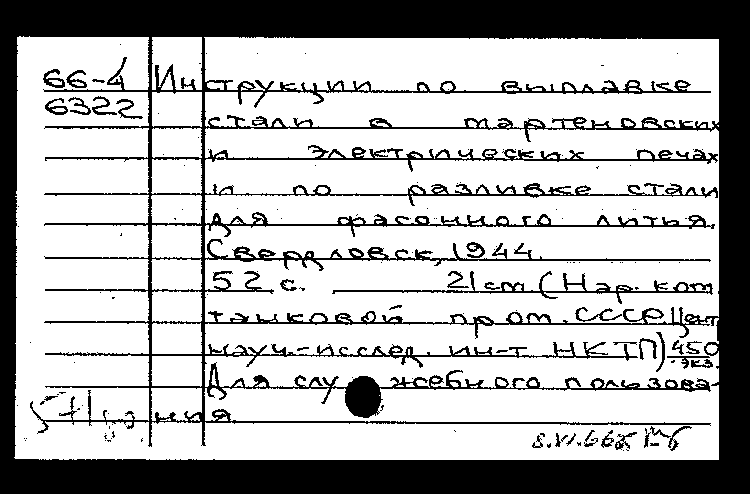 66-4 Инструкции по выплавке
6322 стали в мартеновских
и электрических печах
и по разливке стали
для фасонного литья.
Свердловск, 1944.
52 с. 21 cm (Нар. ком.
танковой пром. СССР. Цент.
науч.-исслед. ин-т НКТП) 450 экз.
Для служебного пользова-
ния
8.VI.66